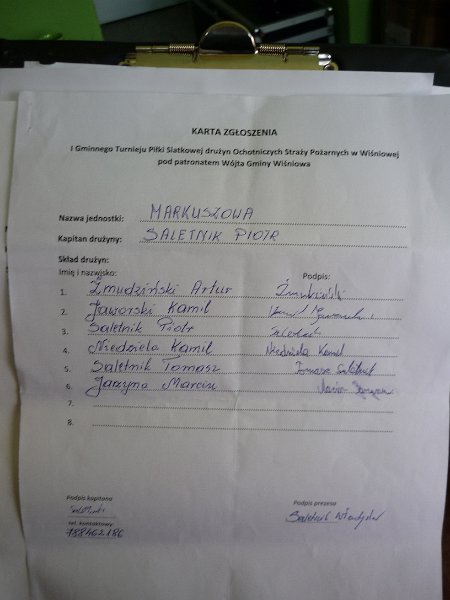 KARTA ZGŁOSZENIA
I Gminnego Turnieju Piłki Siatkowej drużyn Ochotniczych Straży Pożarnych w Wiśniowej
pod patronatem Wójta Gminy Wiśniowa
Nazwa jednostki: MARKUSZOWA
Kapitan drużyny: SALETNIK PIOTR
Skład drużyn:
Imię i nazwisko: Podpis:
1. Żmudziński Artur Żmudziński
2. Jaworski Kamil
3. Saletnik Piotr
4. Niedziela Kamil Niedziela Kamil
5. Saletnik Tomasz Tomasz Saletnik
6. Jarzyna Marcin Marcin Jarzyna
7.
8.
Podpis kapitana Podpis prezesa
Saletnik Władysław
tel. kontaktowy:
788462186